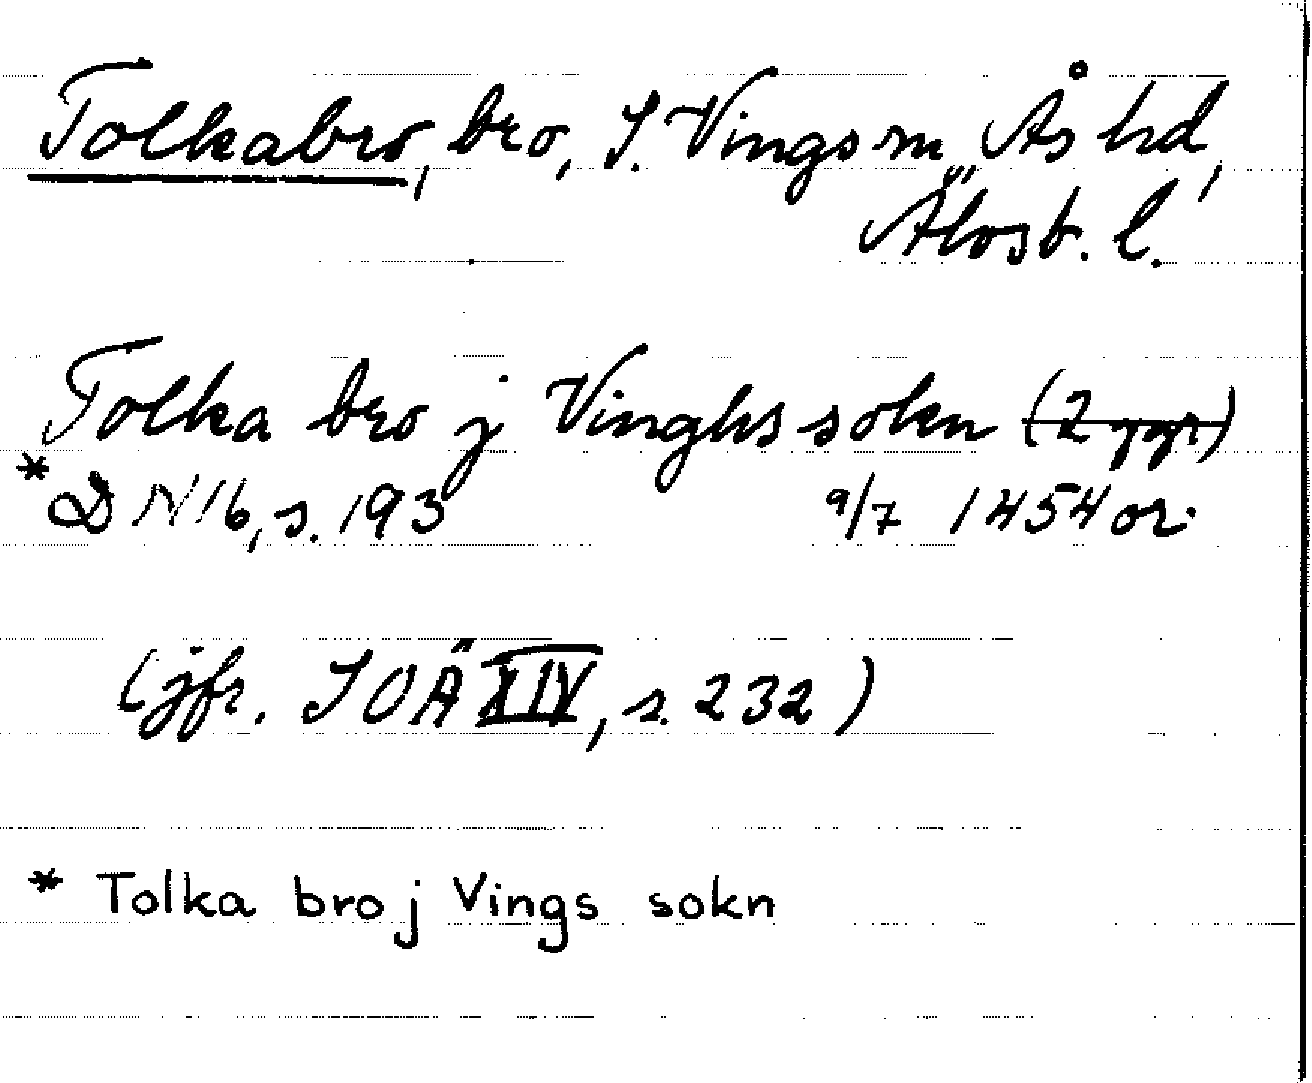 Tolkabro, bro, S. Vings sn, Ås hd,
Älvsb. l.
Tolka bro j Vinghs sokn (2 ggr)
* DN 16, s. 193 9/7 1454 or.
(jfr. SOÄ XIV, s. 232)
* Tolka bro j Vings sokn